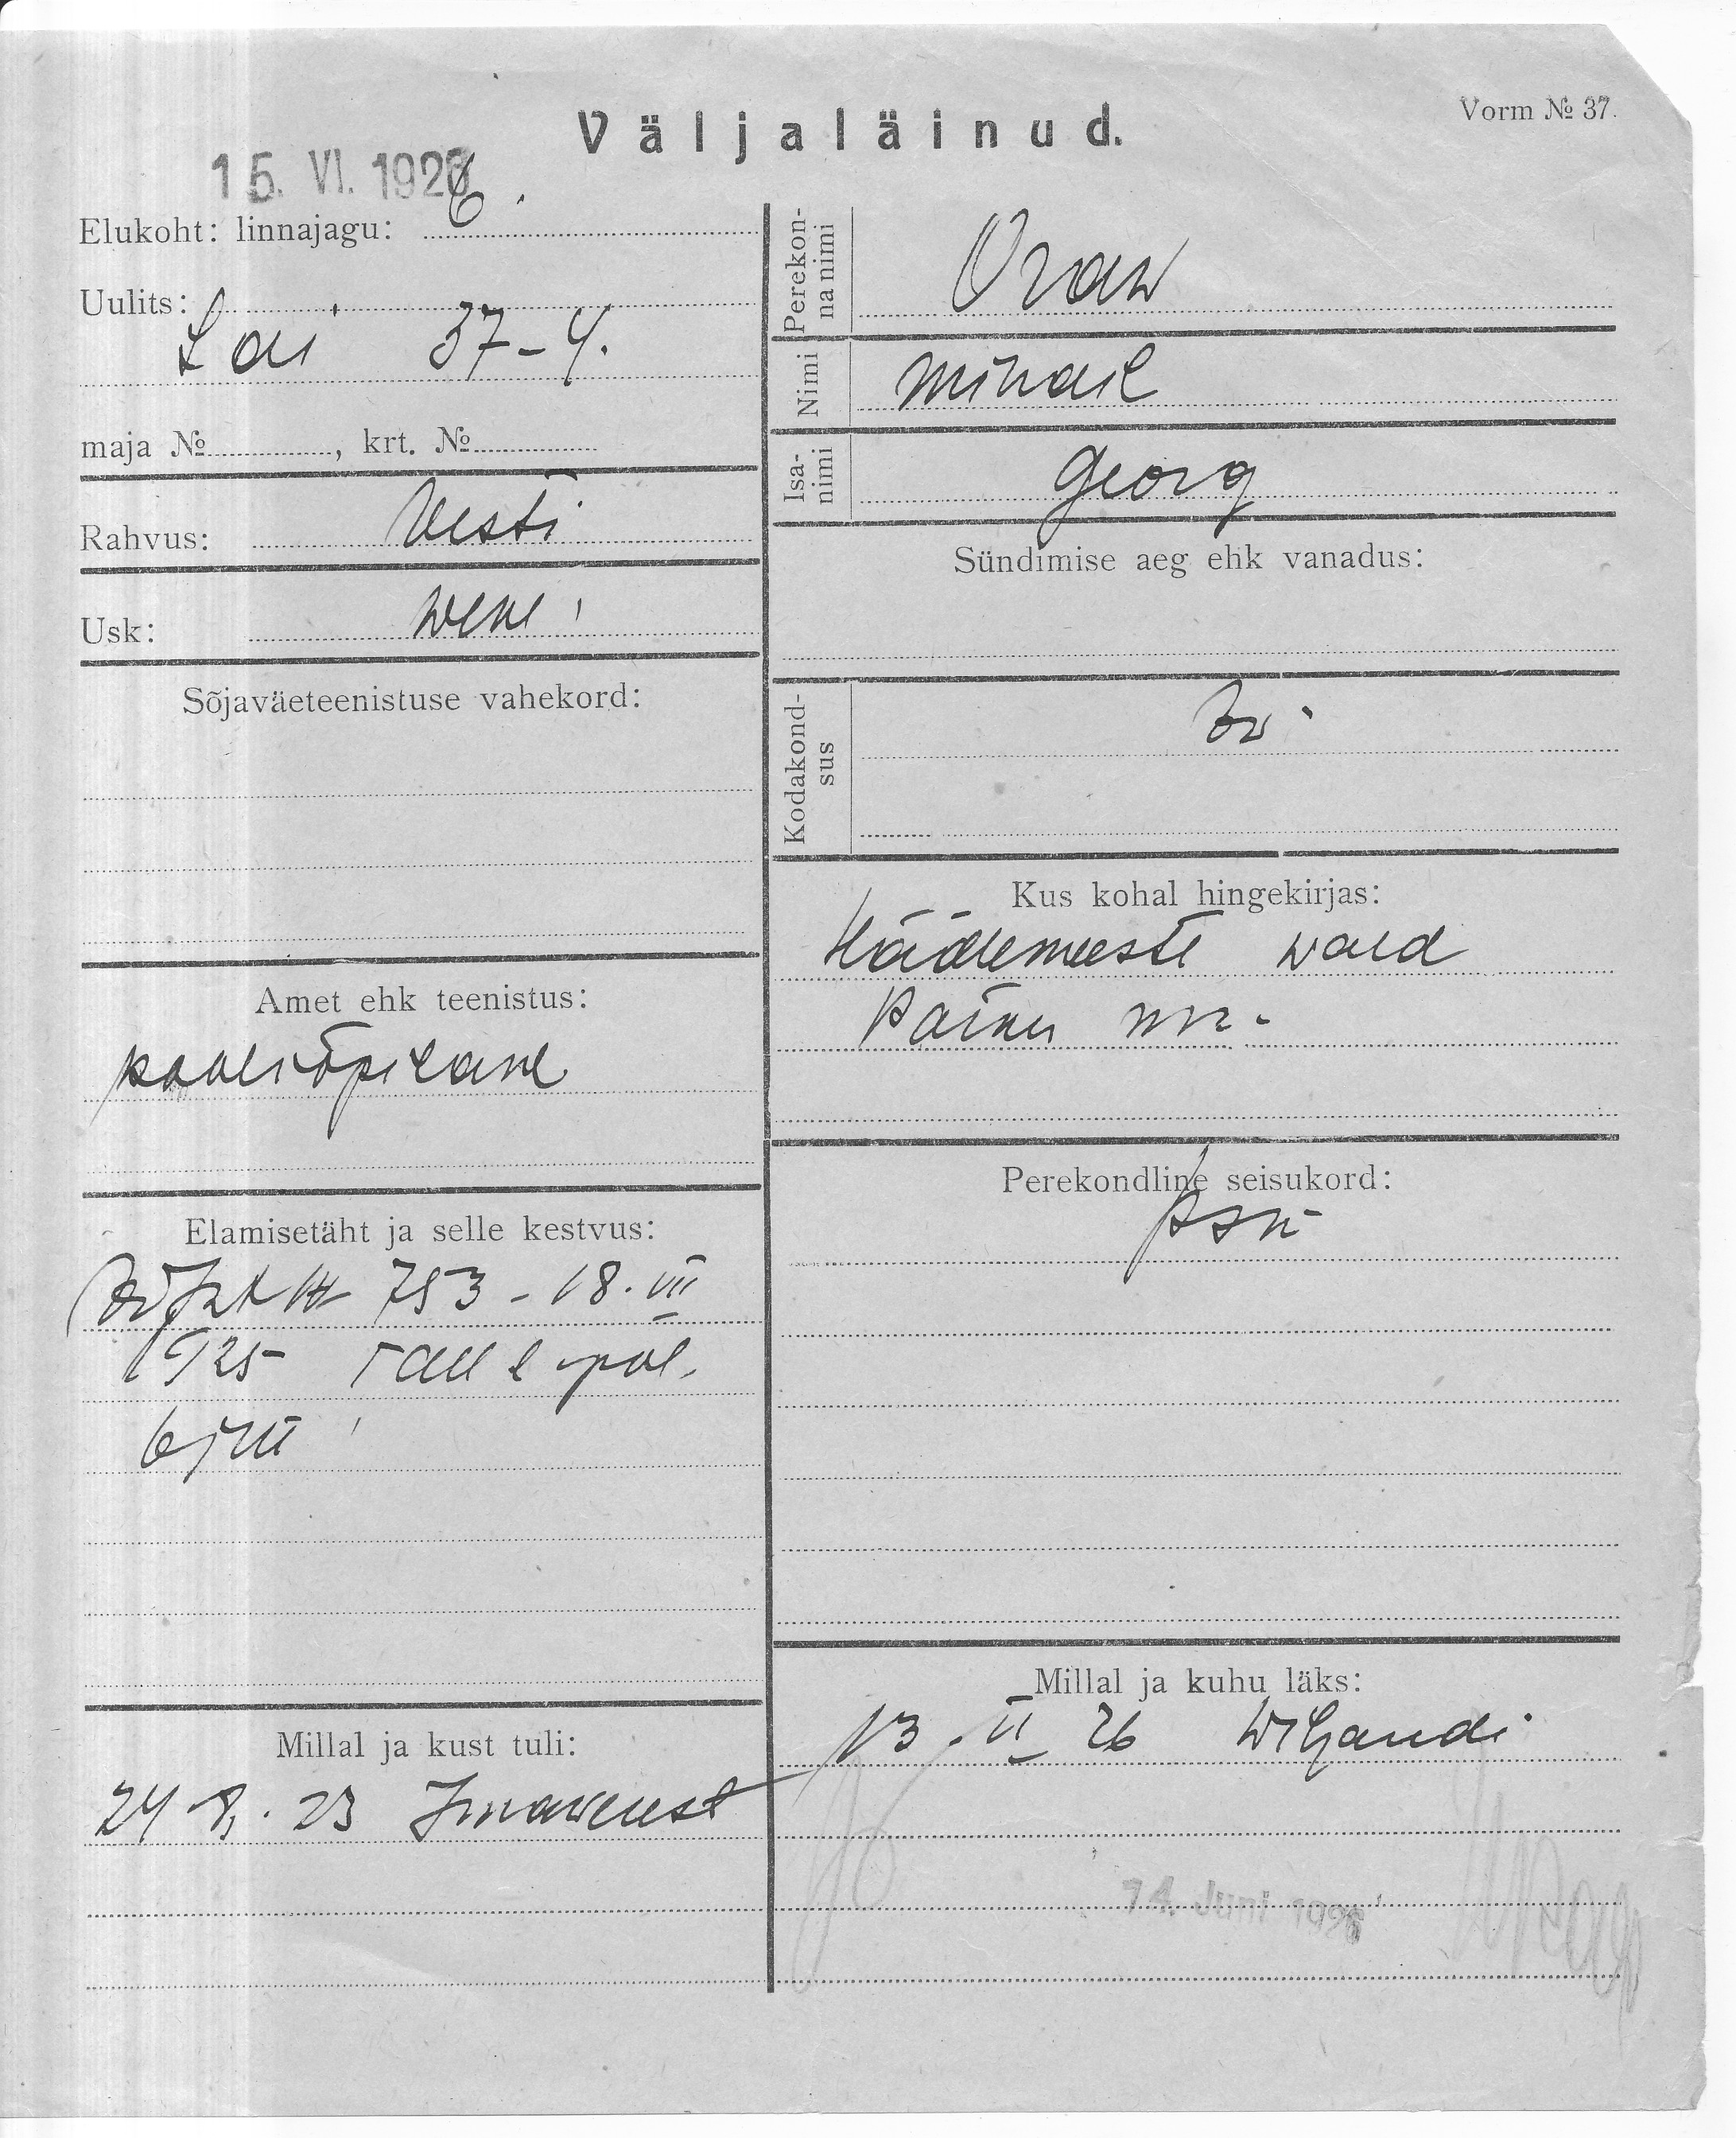 Väljaläinud.
Vorm № 37.
15. VI. 1926
Elukoht: linnajagu:
Uulits:
Lai 37-4.
maja № , krt. №
Rahvus: Eesti
Usk: wene
Sõjaväeteenistuse vahekord:
Amet ehk teenistus:
kooliõpilane
Elamisetäht ja selle kestvus:
753 - 18. VII
1925 Tall
Millal ja kust tuli:
24 23
Perekonna nimi
Oraw
Nimi
Mihail
Isa-nimi
Georg
Sündimise aeg ehk vanadus:
Kodakondsus
Kus kohal hingekirjas:
Häädemeeste wald
Pärnu m.
Perekondline seisukord:
Millal ja kuhu läks:
13. II 26 Wiljandi
14. Juni 1926